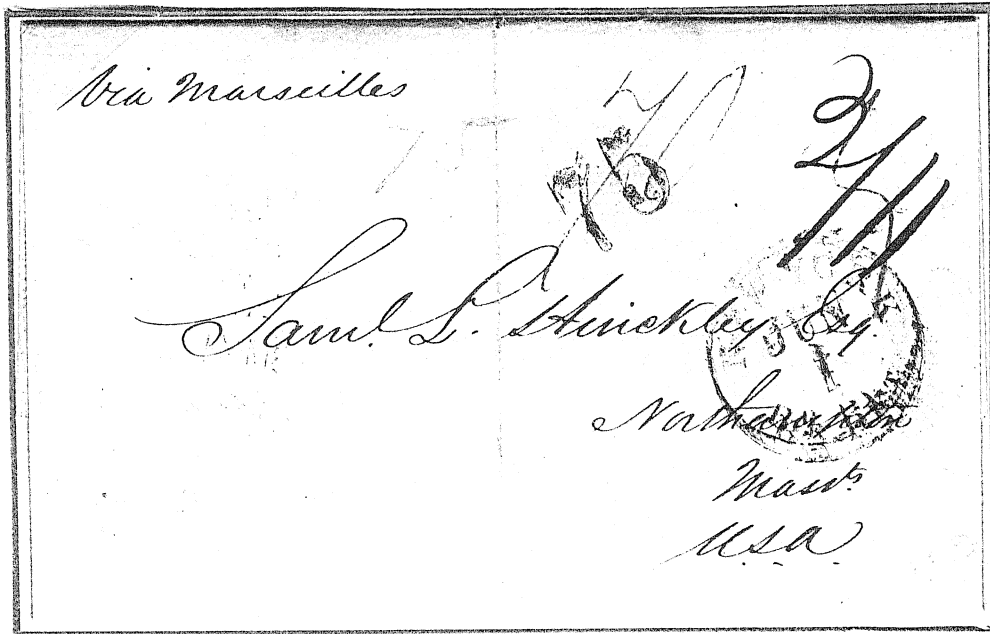 Via Marseilles
Saml. L. Hinckley Esq.
Northampton
Massts
U.S.A